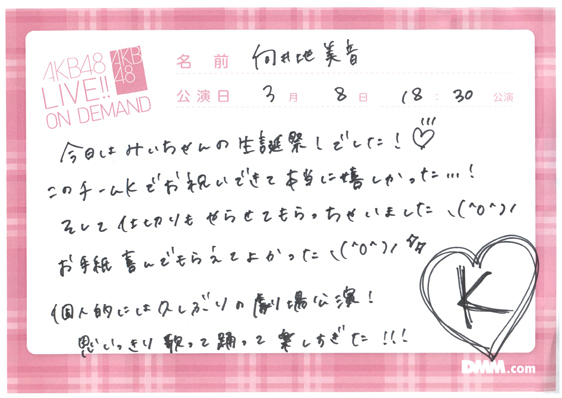 AKB48
LIVE!!
ON DEMAND
AKB
48
名前 向井地美音
公演日 3月 8日 18:30 公演
今日はみぃちゃんの生誕祭でした!♡
このチームKでお祝いできて本当に嬉しかった…!
そして仕切りもやらせてもらっちゃいました\(^o^)/
お手紙喜んでもらえてよかった\(^o^)/
個人的には久しぶりの劇場公演!
思いっきり歌って踊って楽しすぎた!!!
K
DMM.com